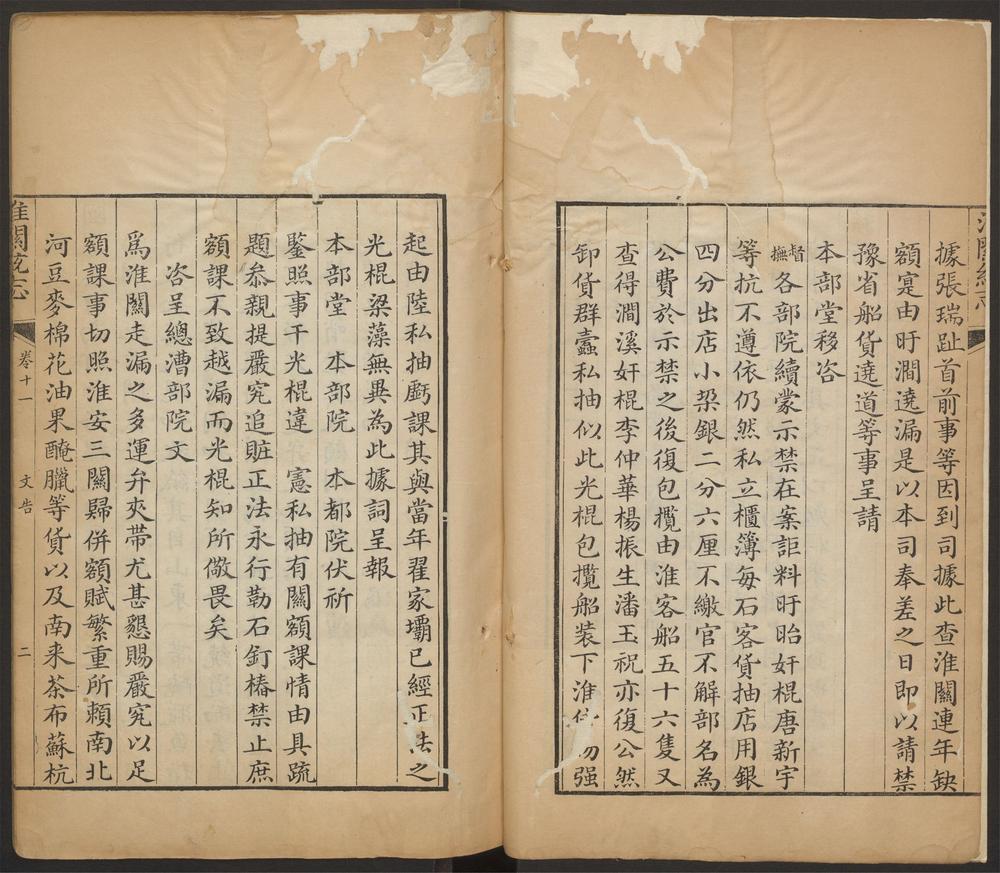 據張瑞趾首前事等因到司據此查淮關連年缺
額寔由盱澗遶漏是以本司奉差之日即以請禁
豫省船貨遶道等事呈請
本部堂移咨
督撫各部院續蒙示禁在案詎料盱眙奸棍唐新宇
等抗不遵依仍然私立櫃簿每石客貨抽店用銀
四分出店小梁銀二分六厘不繳官不解部名為
公費於示禁之後復包攬由淮客船五十六隻又
查得澗溪奸棍李仲華楊振生潘玉祝亦復公然
卸貨群蠹私抽似此光棍包攬船装下淮勿强
起由陸私抽虧課其與當年翟家壩已經正法之
光棍梁藻無異為此據詞呈報
本部堂 本部院 本都院伏祈
鑒照事干光棍違 憲私抽有關額課情由具疏
題叅親提嚴究追賍正法永行勒石釘樁禁止庶
額課不致越漏而光棍知所儆畏矣
咨呈總漕部院文
爲淮關走漏之多運弁夾帶尤甚懇賜嚴究以足
額課事切照淮安三關歸併額賦繁重所賴南北
河豆麥棉花油果醃臘等貨以及南来茶布蘇杭
淮關統志
卷十一
文告
二